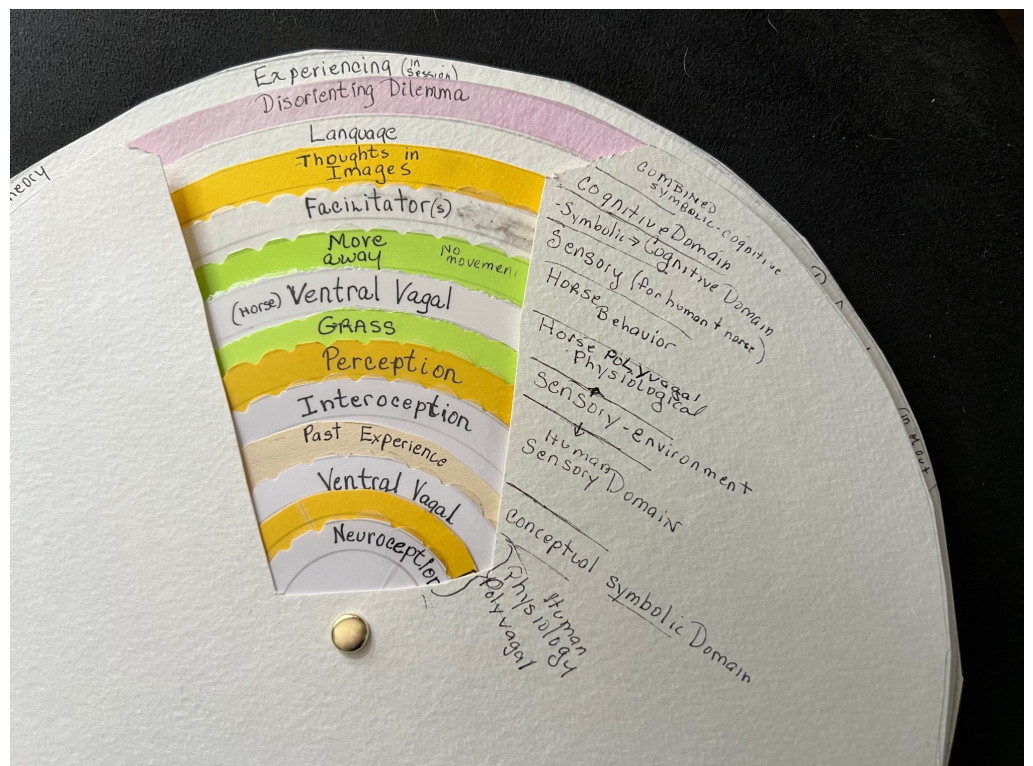 Experiencing (in session)
Disorienting Dilemma
Language
Thoughts in
Images
Facilitator(s)
More
away
No
movemen
(Horse) Ventral Vagal
GRASS
Perception
Interoception
Past Experience
Ventral Vagal
Neuroception
heory
COMBINED
SYMBOLIC-COGNITIVE
Cognitive Domain
-Symbolic → Cognitive Domain
Sensory (for human + horse)
Horse
Behavior
Horse POLYVAGAL
Physiological
Sensory-environment
Human
Sensory Domain
conceptual symbolic Domain
Human
Physiology
Polyvagal